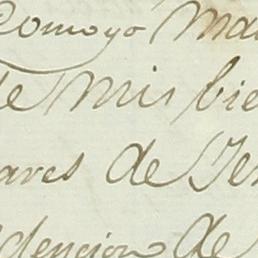 Comoyo Ma
de mis bie
ares de Te
dencion de